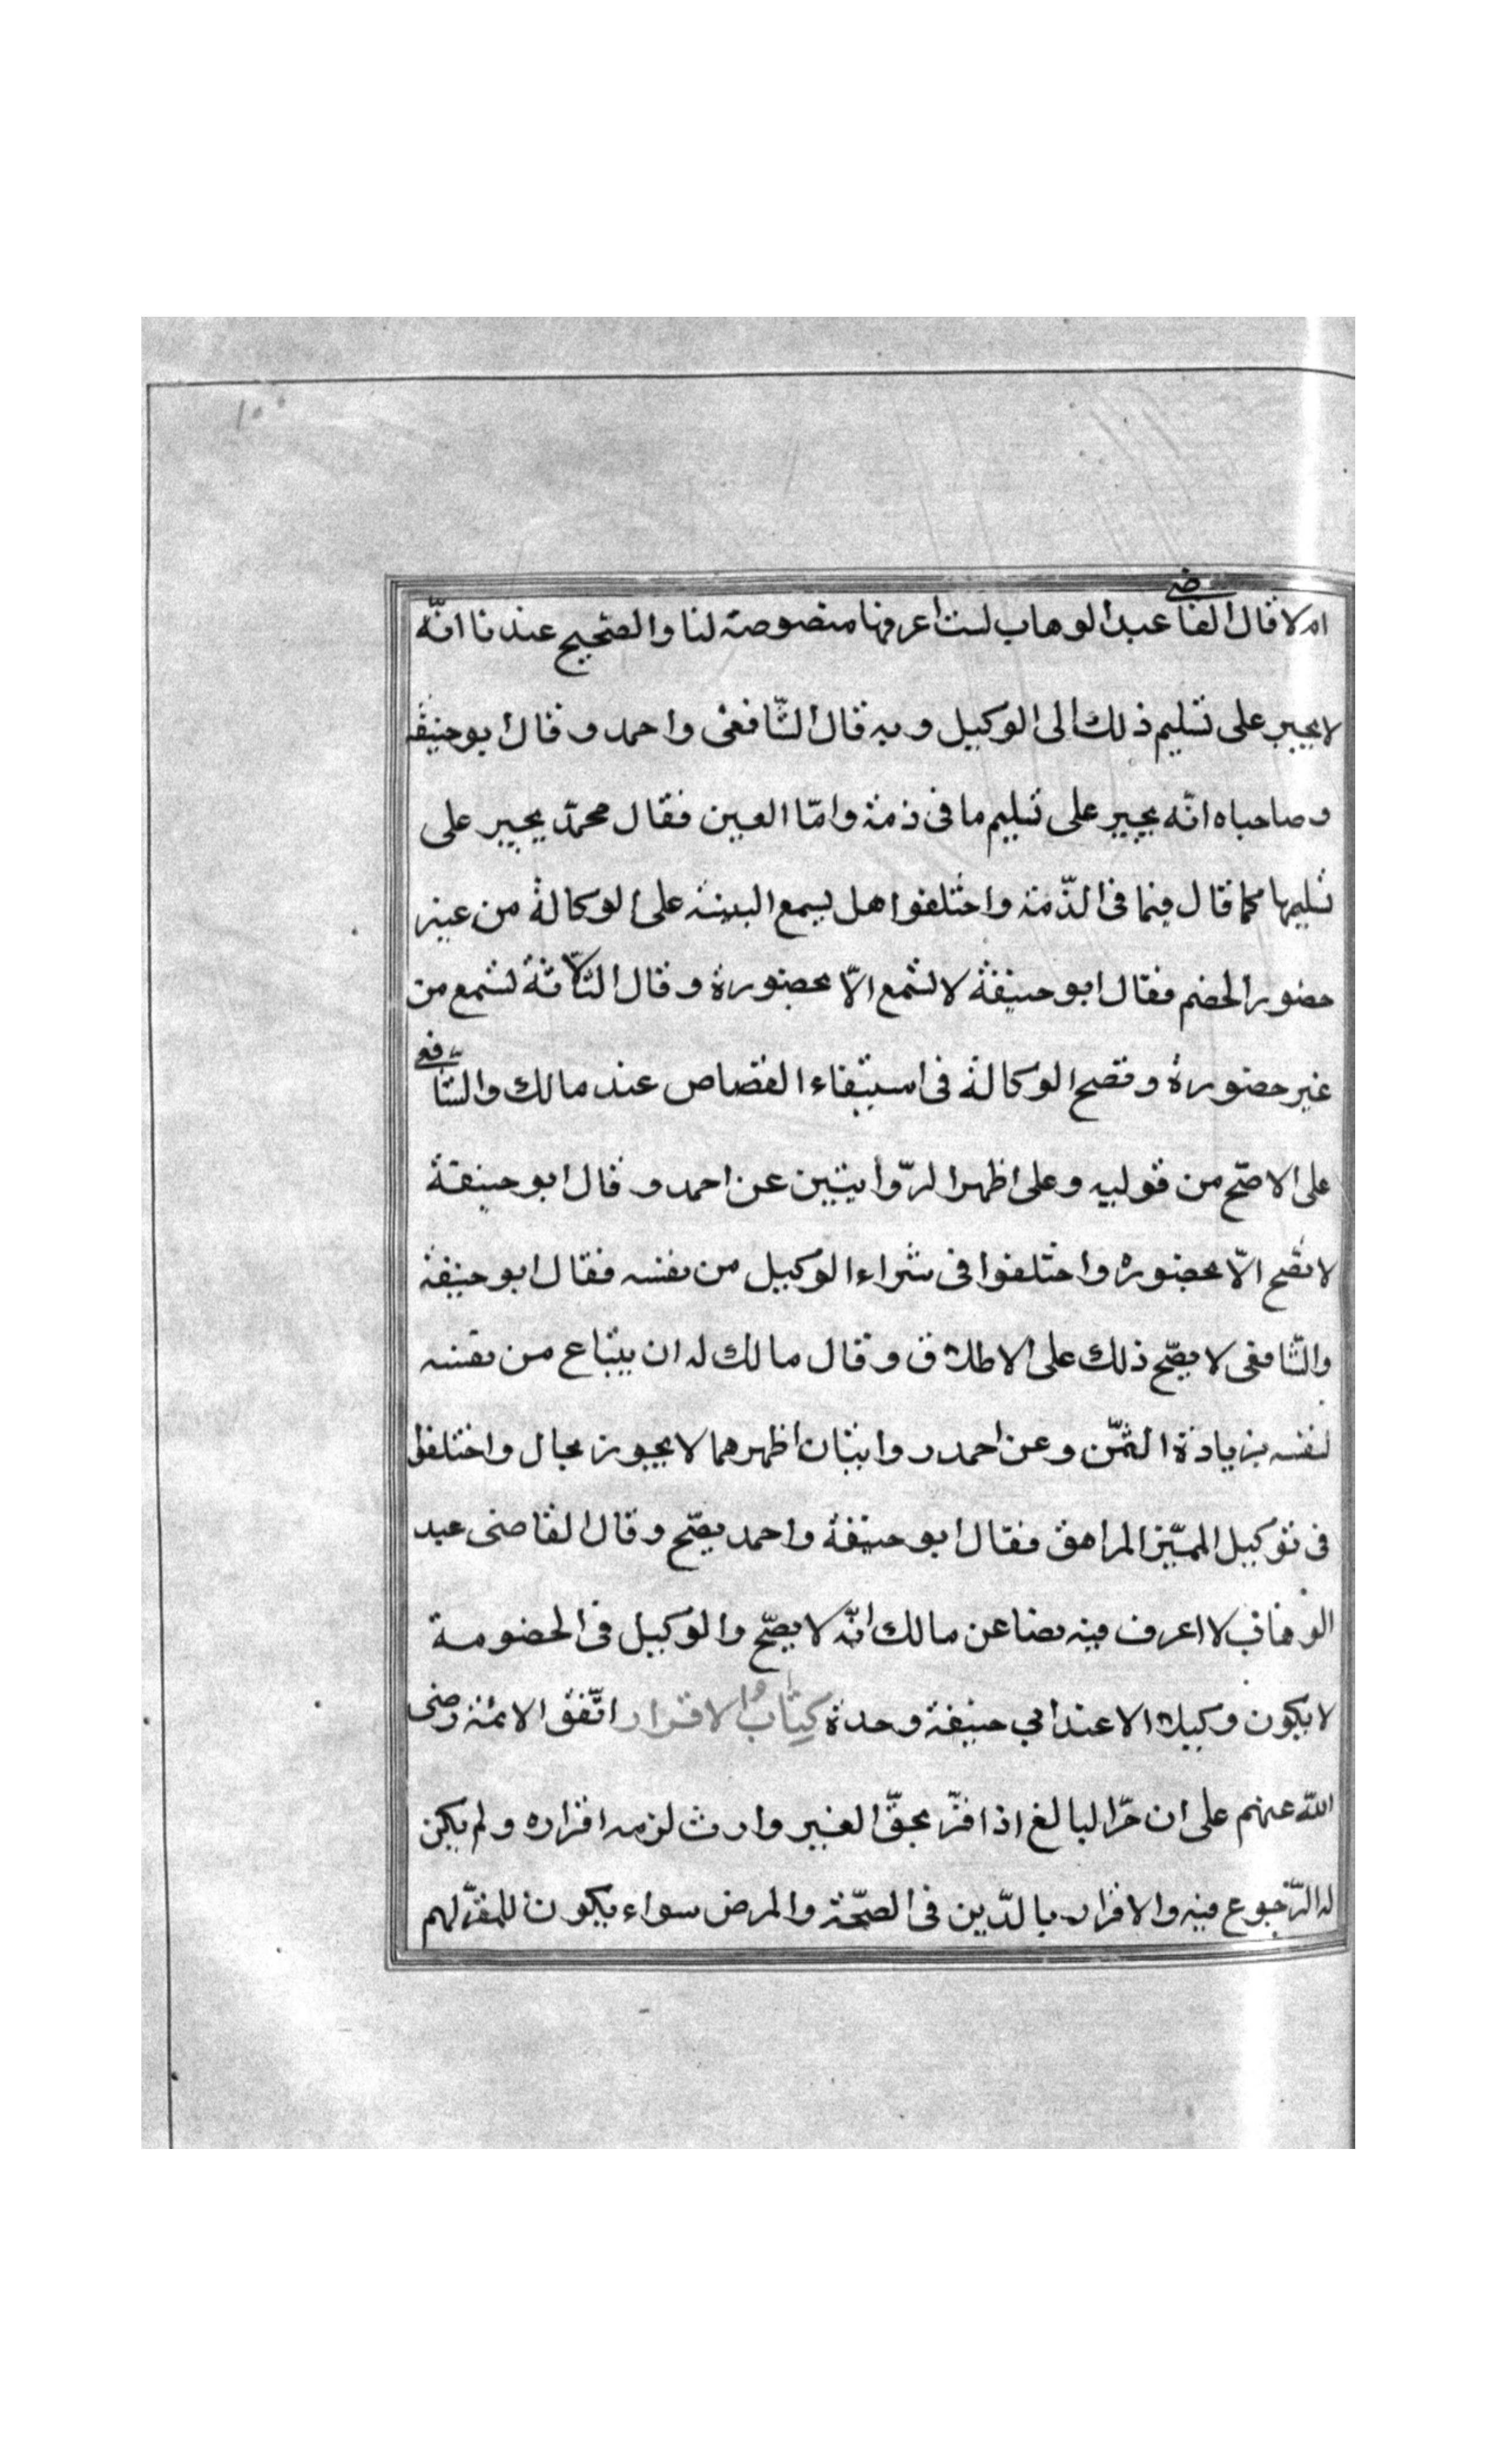 ١٠٠
ام لا قال القاضى عبد الوهاب لست اعرفها منصوصة لنا والصّحيح عندنا انّه
لا يجبر على تسليم ذلك الى الوكيل وبه قال الشّافعى واحمد وقال ابو حنيفة
وصاحباه انّه يجبر على تسليم ما فى ذمة وامّا العين فقال محمّد يجبر على
تسليمها كما قال فيما فى الذّمة واختلفوا هل يسمع البينة على الوكالة من غير
حضور الخصم فقال ابو حنيفة لا تسمع الّا بحضورة وقال الثّلاثة تسمع من
غير حضورة وتصح الوكالة فى استيفاء القصاص عند مالك والشّافعى
على الاصّح من قوليه وعلى اظهر الرّوايتين عن احمد وقال ابو حنيفة
لا تصّح الّا بحضوره واختلفوا فى شراء الوكيل من نفسه فقال ابو حنيفة
والشّافعى لا يصّح ذلك على الاطلاق وقال مالك له ان يبتاع من نفسه
لنفسه بزيادة الثمّن وعن احمد روايتان اظهرهما لا يجوز بحال واختلفوا
فى توكيل المميّز المراهق فقال ابو حنيفة واحمد يصّح وقال القاضى عبد
الوهاب لا اعرف فيه نصا عن مالك انّه لا يصّح والوكيل فى الخصومة
لا يكون وكيلا الا عند ابي حنيفة وحدة كتاب الاقرار اتّفق الائمة رضى
اللّه عنهم على ان حرّ البالغ اذا اقرّ بحقّ الغير وارث لزمه اقراره ولم يكن
له الرّجوع فيه والاقرار بالدّين فى الصّحة والمرض سواء يكون للمقرّ لهم